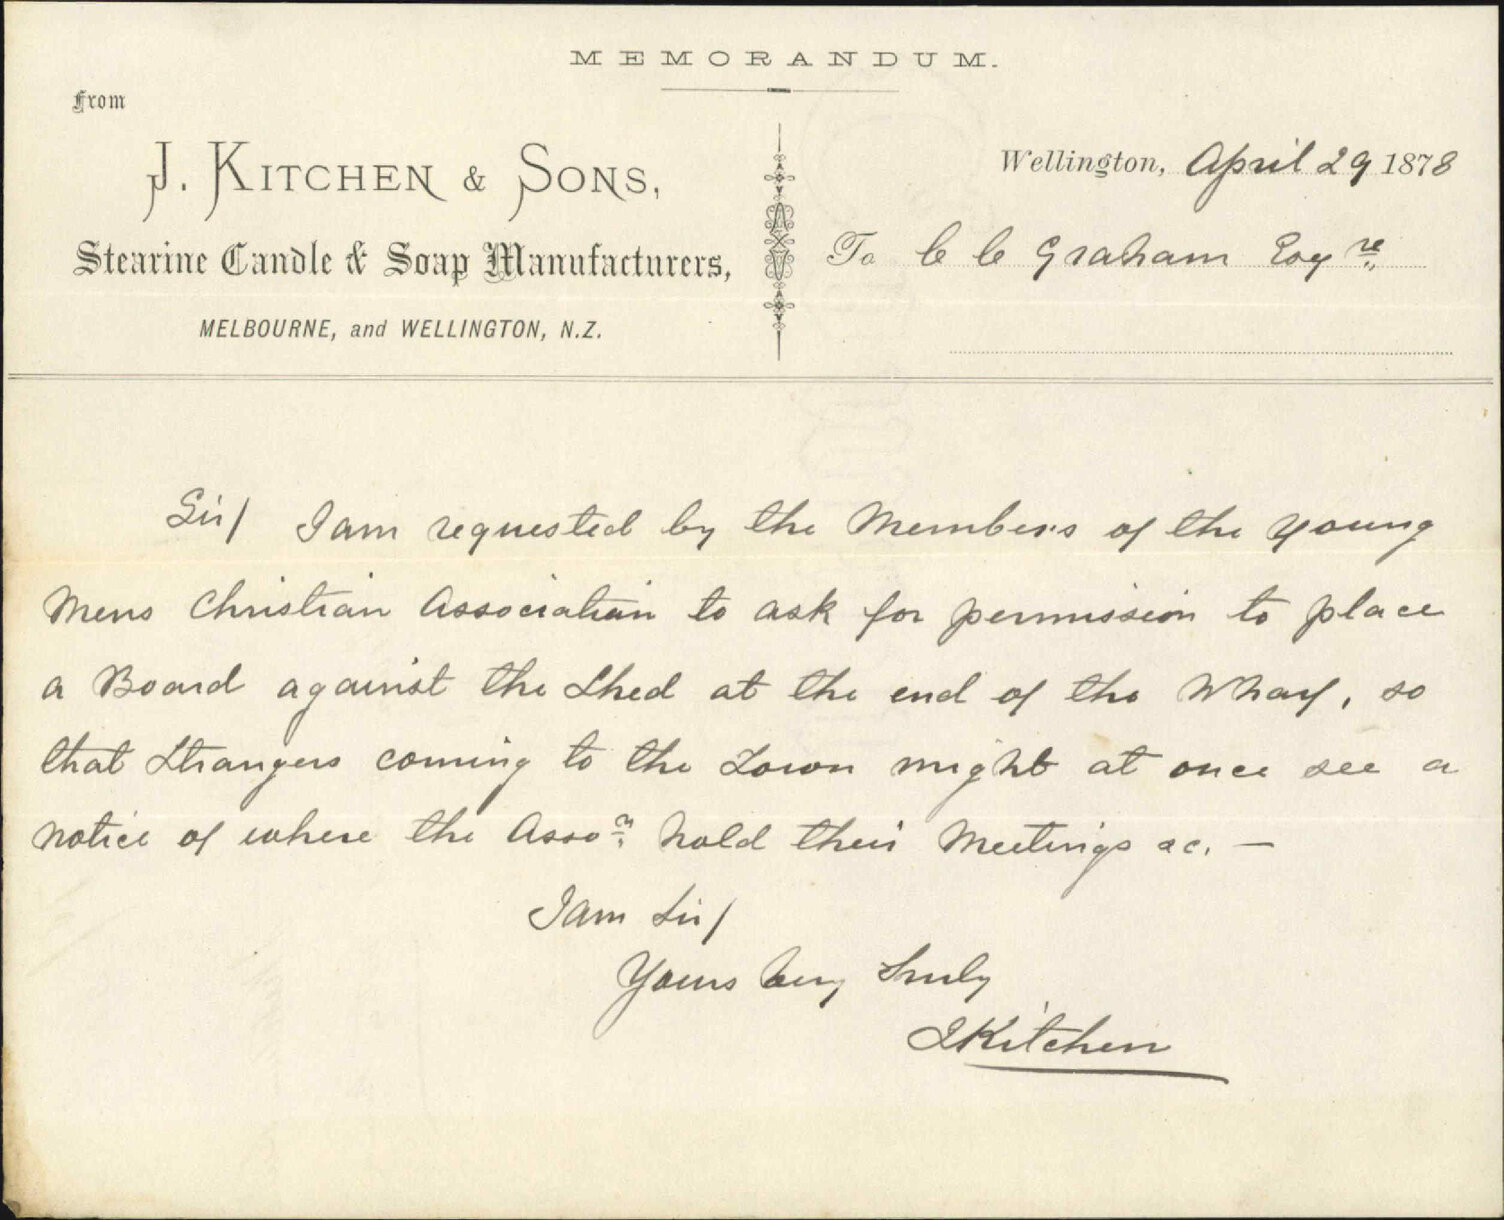 MEMORANDUM.
From
J. KITCHEN & SONS,
Stearine Candle & Soap Manufacturers,
MELBOURNE, and WELLINGTON, N.Z.
Wellington, April 29 1878
To C C Graham Esqre
Sir/ I am requested by the Members of the Young
Mens Christian Association to ask for permission to place
a Board against the Shed at the end of the Wharf, so
that Strangers coming to the Town might at once see a
notice of where the Asson. hold their Meetings &c. —
I am Sir/
Yours very Truly
J Kitchen